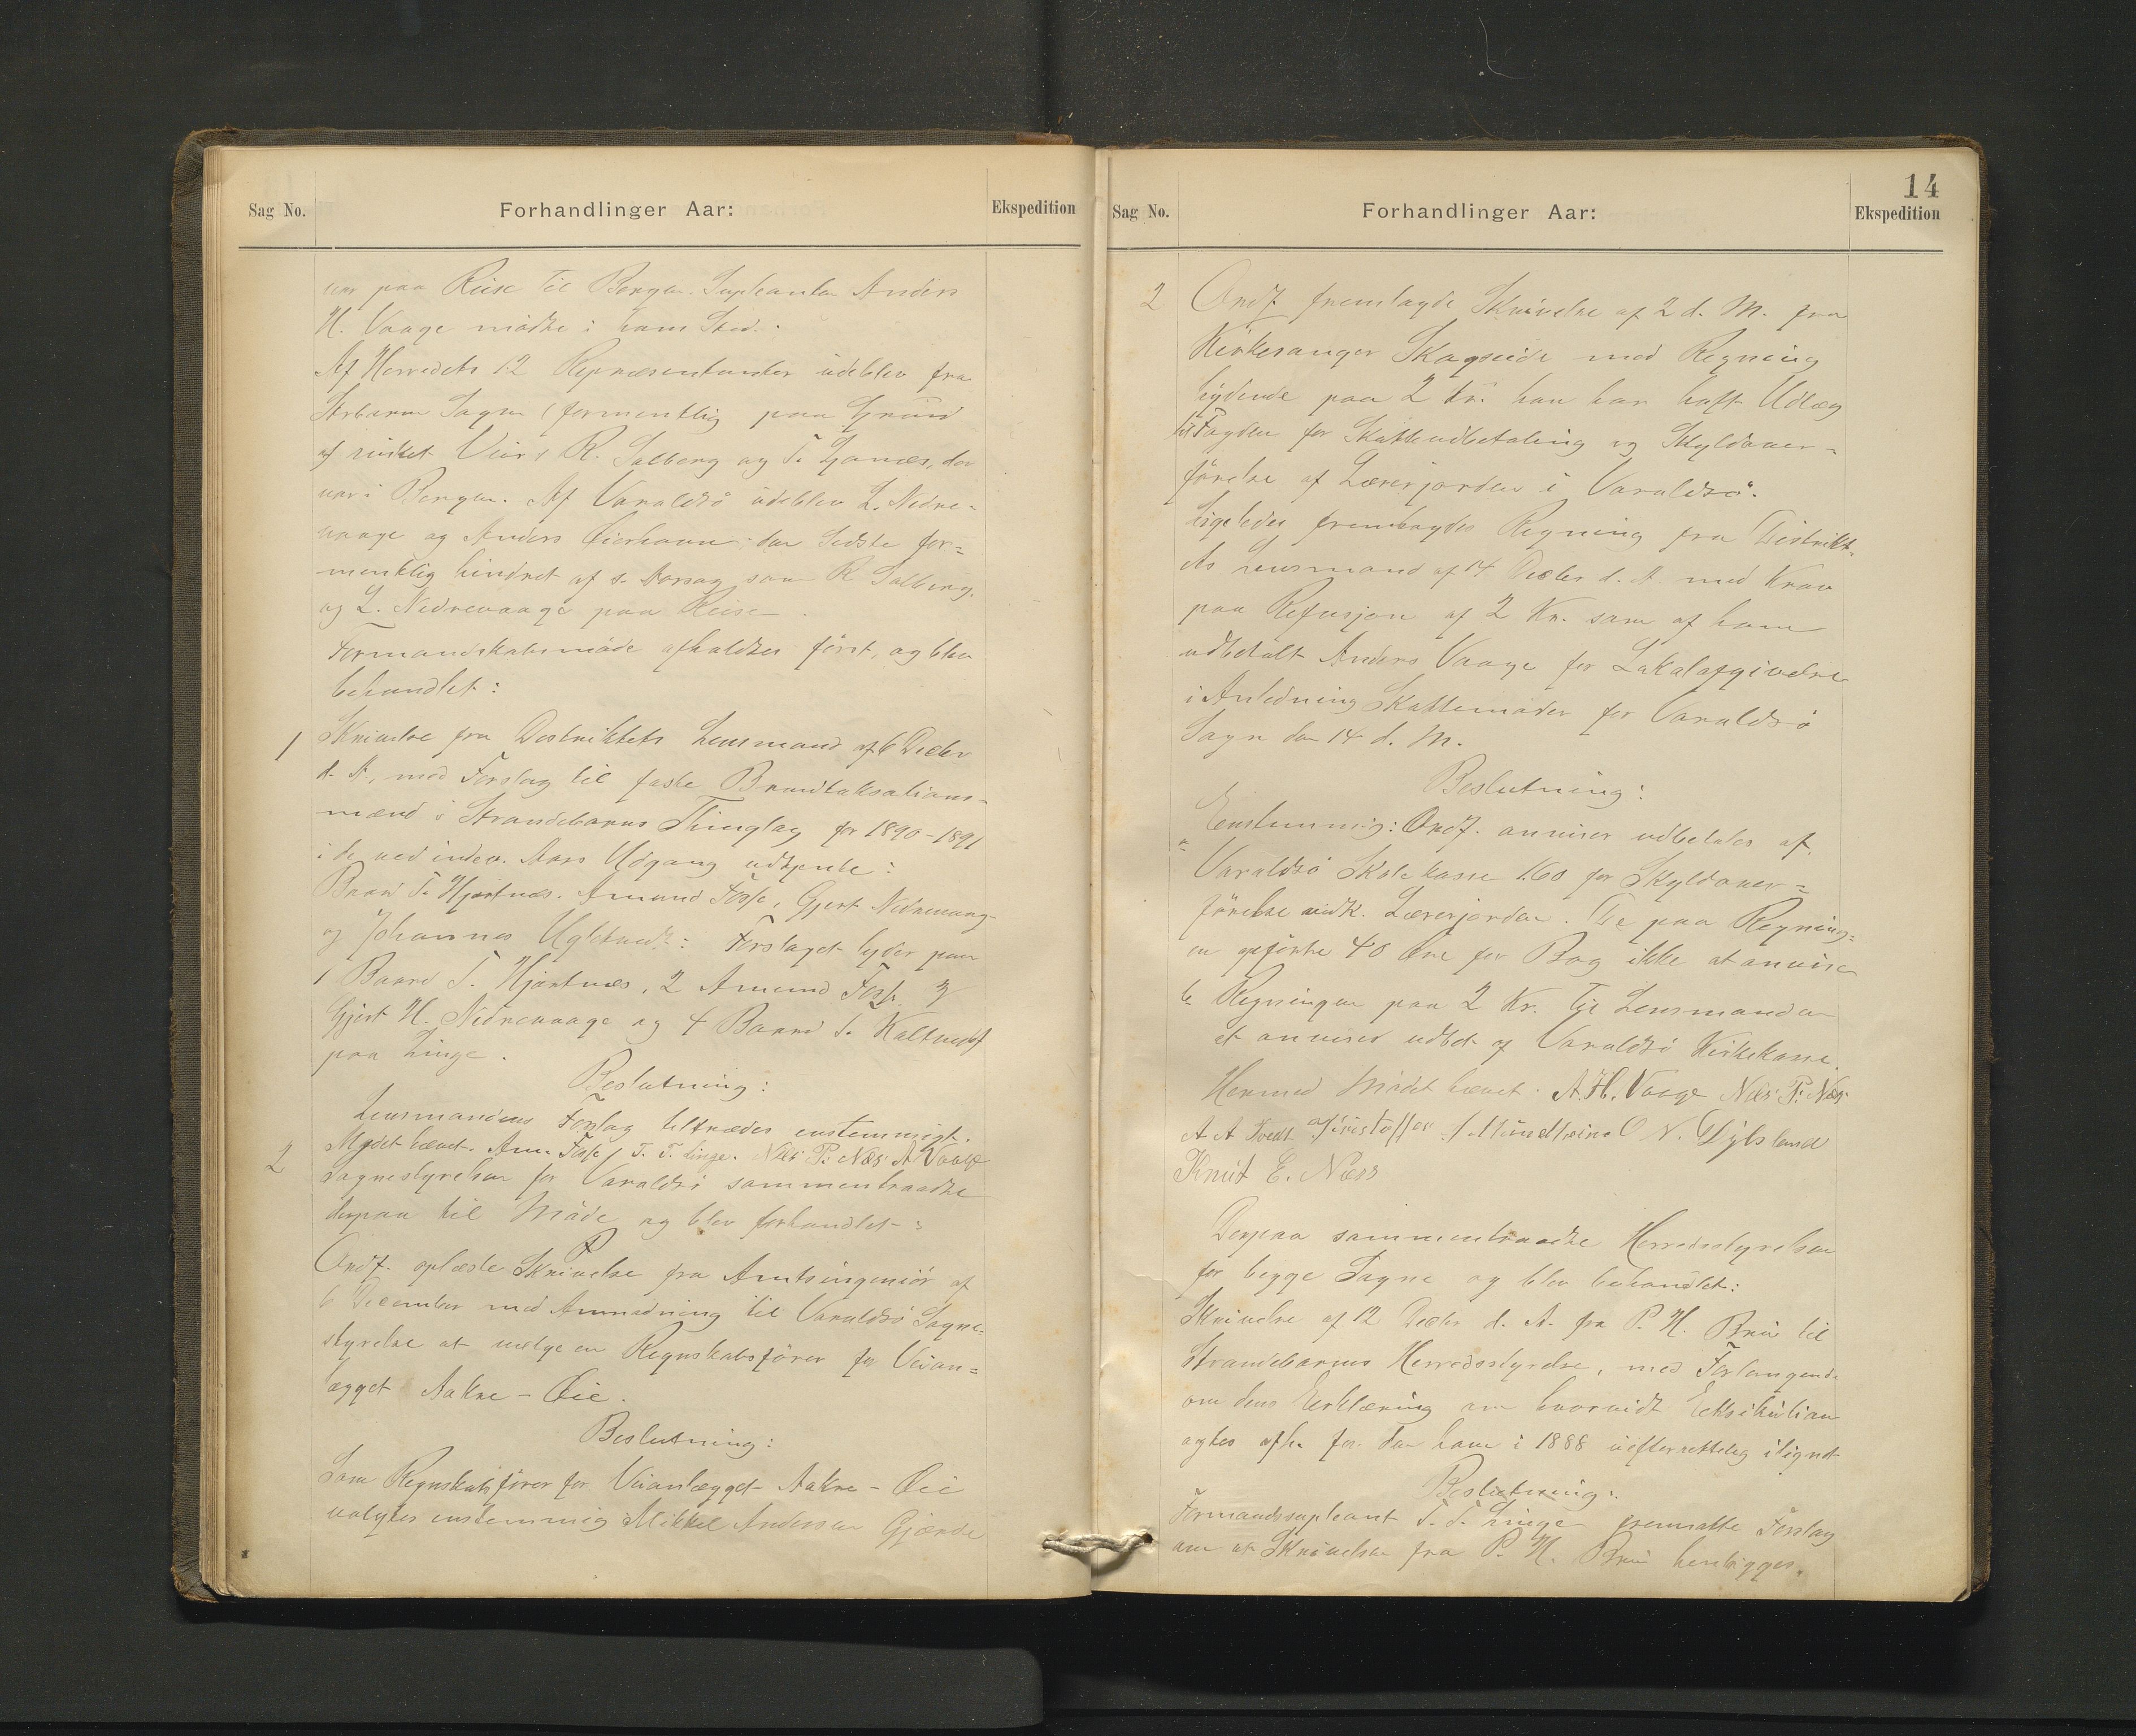 Sag No.
Forhandlinger Aar:
Ekspedition
var paa Reise til Bergen. Supleanten Anders
H. Vaage mødte i hans Sted.
Af Herredets 12 Repræsentanter udeblev fra
Strbarm Sogn (formentlig paa Grund
af Veir) R. Solberg og T. Lønnes, der
var i Bergen. Af Varaldsø udeblev L. Nedre-
vaage og Anders Øierhavn; den Sidste for=
mentlig hindret af s. Aarsag som R Solberg.
og L. Nedrevaage paa Reise.
Formandskabsmøde afholdtes først, og blev
behandlet:
1 Skrivelse fra Destriktets Lensmand af 6 Decbr
d. A, med Forslag til faste Brandtaksations-
mænd i Strandebarms Thinglag for 1890-1891
i de ved indev. Aars Udgang udtjente:
Baard T. Hjartnæs. Amund Fosse, Gjert Nedrevaag-
og Johannes Ugletvedt: Forslaget lyder paa
1 Baard T. Hjartnæs, 2 Amund Fosse. 3
Gjert H. Nedrevaage og 4 Baard T. Kaltvedt
paa Linge.
Beslutning:
Lensmandens Forslag tiltrædes enstemmigt.
Mødet hævet. Am. Fosse T. T. Linge. Nils P. Næs A Vaage
2 Sognestyrelsen for Varaldsø sammentraadte
derpaa til Møde og blev forhandlet:
Ordf. oplæste Skrivelse fra Amtsingeniør af
6 December med Anmodning til Varaldsø Sogne-
styrelse at vælge en Regnskabsfører for Veian=
lægget Aakre - Øie.
Beslutning:
Som Regnskabsfører for Veianlægget Aakre - Øie
valgtes enstemmig Mikkel Andersen Gjærde
14
Sag No.
Forhandlinger Aar:
Ekspedition
2 Ordf fremlagde Skrivelse af 2 d. M. fra
Kirkesanger Skogseide med Regning
lydende paa 2 kr. han har haft Udlæg
til Fogden for Skatteudbetaling og Skyldover-
førelse af Lærerjorden i Varaldsø.
Ligeledes fremlagdes Regning fra Distrikt-
ets Lensmand af 14 Decbr d. A med Krav
paa Refusjon af 2 Kr. som af ham
udbetalt Anders Vaage for Lokalafgivelse
i Anledning Skattemøder for Varaldsø
Sogn den 14 d. M.
Beslutning:
Enstemmig: Ordf. anviser udbetales af
a Varaldsø Skolekasse 1.60 for Skyldover=
førelse vedk. Lærerjorden. De paa Regning=
en opførte 40 Øre for Bog ikke at anvise
b Regningen paa 2 Kr. til Lensmanden
at anvises udbet af Varaldsø Kirkekasse.
Hermed Mødet hævet. A. H. Vaage Nils P. Næs
A A Tvedt Kristoffer Mundheim O N. Dybsland
Knut E. Næss
Derpaa sammentraadte Herredsstyrelsen
for begge Sogne og blev behandlet:
Skrivelse af 12 Decbr d. A. fra P. H. Bru til
Strandebarms Herredsstyrelse, med Forlangende
om dens Erklæring om hvorvidt Eksikution
agtes afh. for den ham i 1888 uefterrettelig ilignt
Beslutning:
Formandssupleant T. T. Linge fremsatte Forslag
om at Skrivelsen fra P. H. Bru henlægges.